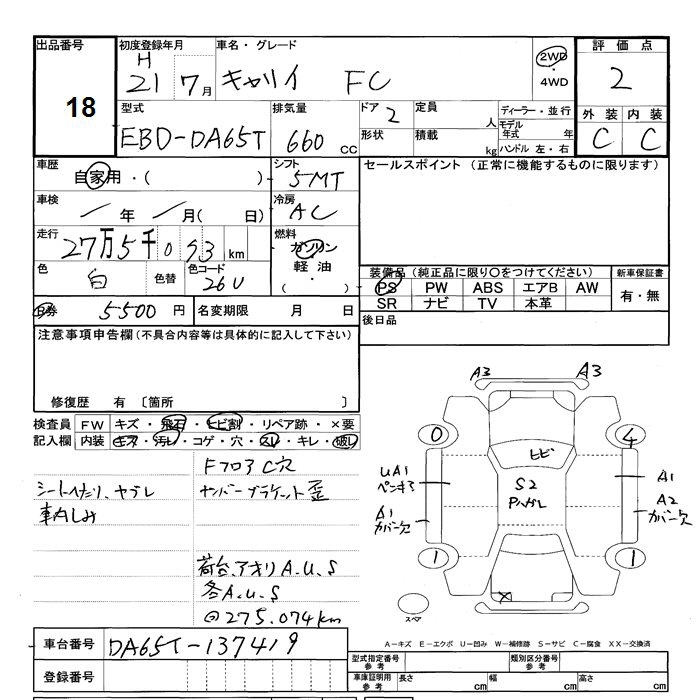 出品番号
18
初度登録年月
H
21 7月
車名・グレード
キャリイ FC
2WD
・
4WD
評価点
2
外装 内装
C C
型式
EBD-DA65T
排気量
660 CC
ドア
2
形状
定員
人
積載
kg
ディーラー・並行
モデル
年式 年
ハンドル 左・右
車歴
自家用・( )
シフト
5MT
車検
/ 年 /月( 日)
冷房
AC
走行
27万5千093 km
燃料
ガソリン
軽油
・
( )
色
白
色替
色コード
26U
セールスポイント (正常に機能するものに限ります)
装備品(純正品に限り○をつけてください)
PS PW ABS エアB AW
SR ナビ TV 本革
新車保証書
有・無
後日品
R券 5500 円
名変期限 月 日
注意事項申告欄(不具合内容等は具体的に記入して下さい)
修復歴 有 〔箇所 〕
検査員
記入欄
FW キズ・飛石・ヒビ割・リペア跡・×要
内装 キズ・汚レ・コゲ・穴・スレ・キレ・破レ
シートへたり、ヤブレ
車内しみ
Fフロア C穴
ナンバーブラケット歪
荷台、アオリ A.U.S
各A.U.S
@275.074km
A3 A3
0 4
ヒビ
UA1
ペンキ
S2
A1
A1
カバー欠
A2
カバー欠
1 1
×
スペア
A－キズ E－エクボ U－凹み W－補修跡 S－サビ C－腐食 XX－交換済
車台番号
DA65T-137419
登録番号
型式指定番号
参考
類別区分番号
参考
車庫証明用
参考
長さ cm
幅 cm
高さ cm